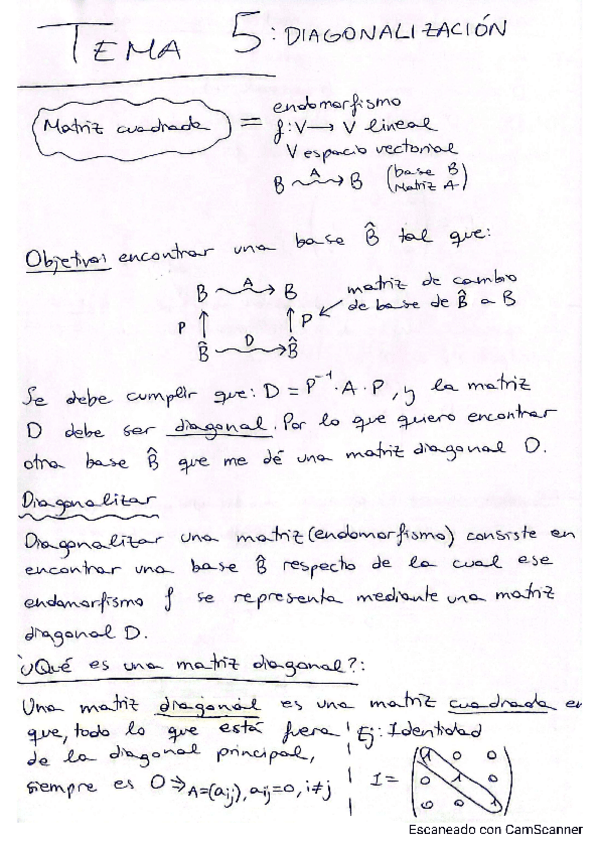 TEMA 5: DIAGONALIZACIÓN
Matriz cuadrada = endomorfismo
f: V → V lineal
V espacio vectorial
B A B (base B
Matriz A)
Objetivo: encontrar una base B̂ tal que:
B A B matriz de cambio
de base de B̂ a B
P ↑ ↑ P
B̂ D B̂
Se debe cumplir que: D = P⁻¹ · A · P, y la matriz
D debe ser diagonal. Por lo que quero encontrar
otra base B̂ que me dé una matriz diagonal D.
Diagonalizar
Diagonalizar una matriz (endomorfismo) consiste en
encontrar una base B̂ respecto de la cual ese
endomorfismo f se representa mediante una matriz
diagonal D.
¿Qué es una matriz diagonal?:
Una matriz diagonal es una matriz cuadrada en
que, todo lo que está fuera
de la diagonal principal,
siempre es 0 ⇒ A=(aij), aij=0, i≠j
Ej: Identidad
I =
1 0 0
0 1 0
0 0 1
Escaneado con CamScanner